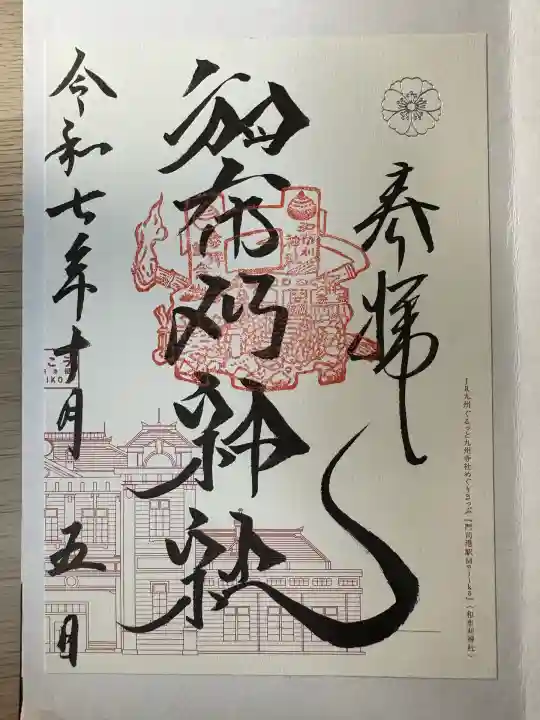 奉拝
和布刈神社
令和七年十月五日
JR九州 ぐるっと九州寺社めぐりきっぷ『門司港駅Mojiko』〈和布刈神社〉